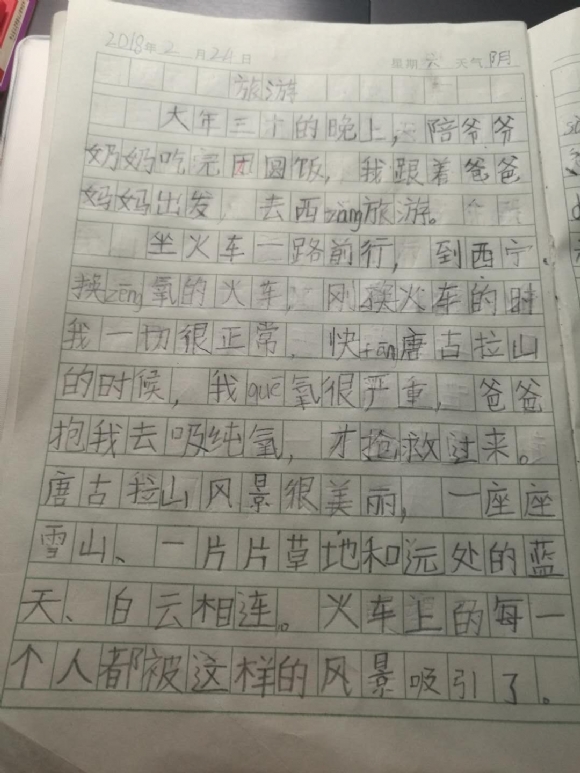 2018年2月24日 星期六 天气阴
旅游
大年三个的晚上,陪爷爷
奶奶吃完团圆饭,我跟着爸爸
妈妈出发 去西zàng旅游。
坐火车一路前行,到西宁
换zēng氧的火车,刚换火车的时
我一切很正常,快tāng唐古拉山
的时候,我quē氧很严重,爸爸
抱我去吸纯氧,才抢救过来。
唐古拉山风景很美丽,一座座
雪山、一片片草地和远处的蓝
天、白云相连。火车上的每一
个人都被这样的风景吸引了。